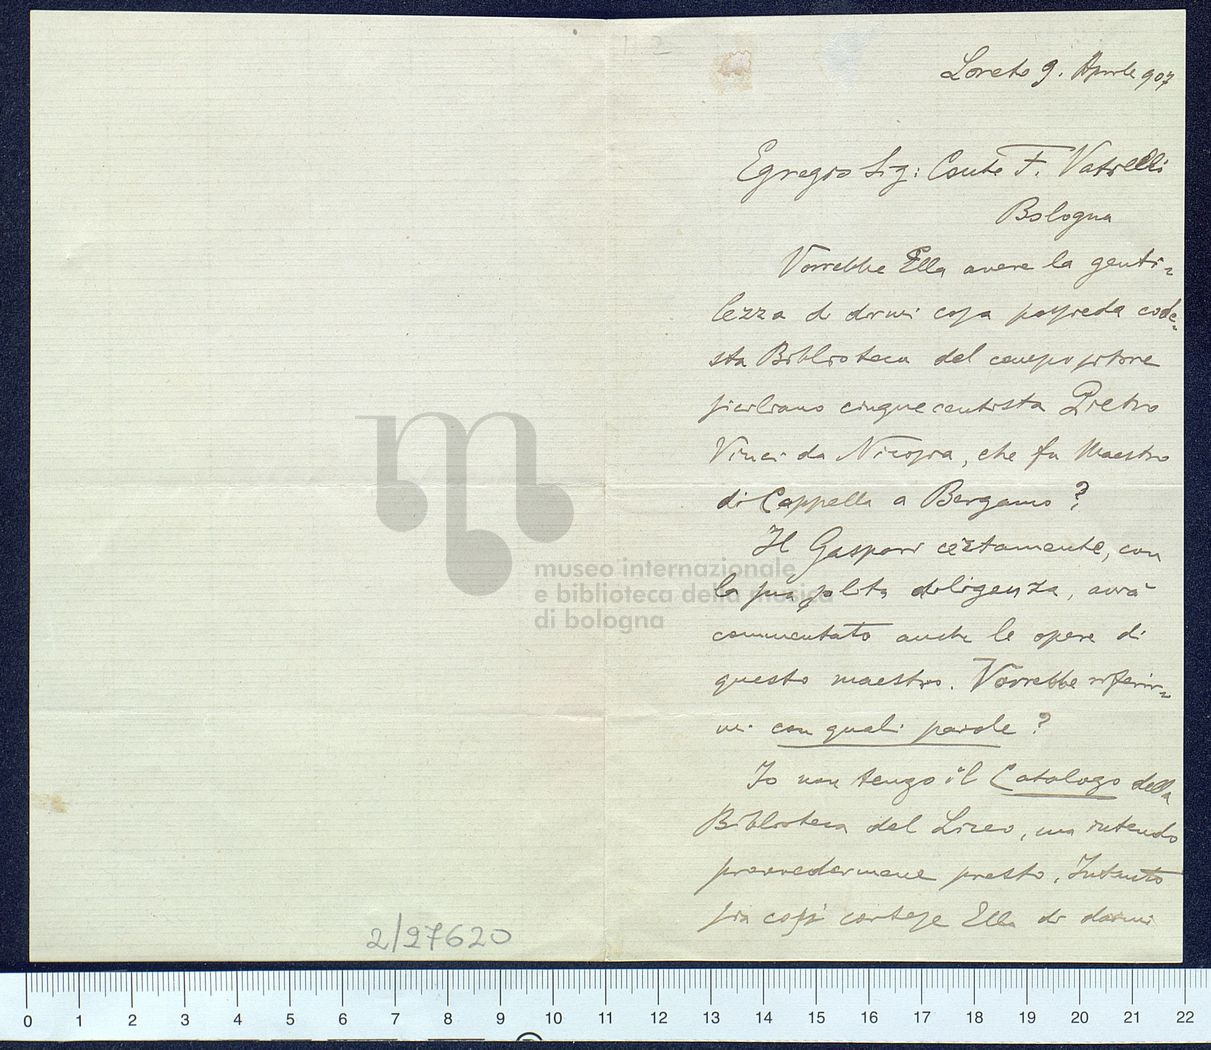 Loreto 9. Aprile 907
Egregio Sig: Conte F. Vatielli
Bologna
Vorrebbe Ella avere la genti-
lezza di dirmi cosa possieda code-
sta Biblioteca del compositore
siciliano cinquecentista Pietro
Vinci da Nicosia, che fu Maestro
di Cappella a Bergamo?
Il Gaspari certamente, con
la sua solita diligenza, avrà
commentato anche le opere di
questo maestro. Vorrebbe riferir-
mi con quali parole?
Io non tengo il Catalogo della
Biblioteca del Liceo, ma intendo
provvedermene presto. Intanto
sia così cortese Ella di darmi
2/27620
museo internazionale
e biblioteca della musica
di bologna
0 1 2 3 4 5 6 7 8 9 10 11 12 13 14 15 16 17 18 19 20 21 22